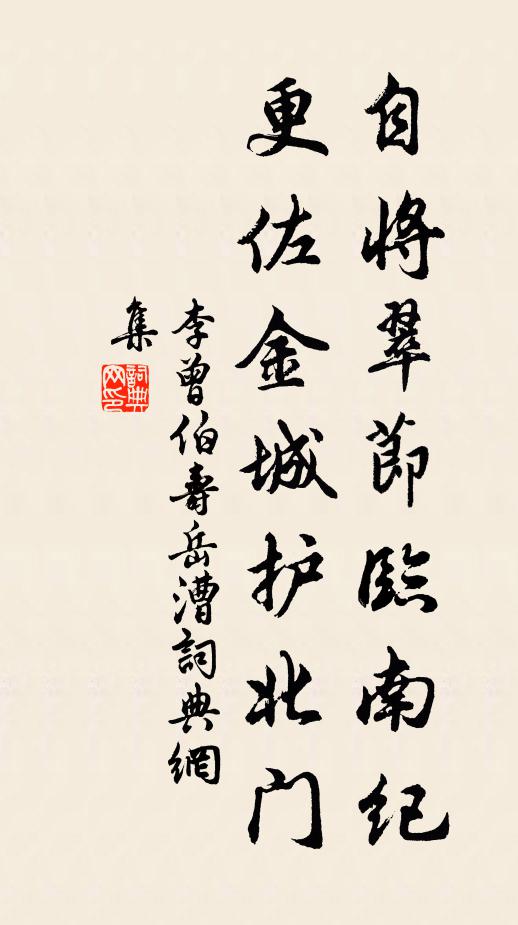 自将翠節臨南紀
更佐金城护北门
李曾伯壽岳漕詞典網
集
詞典
网印